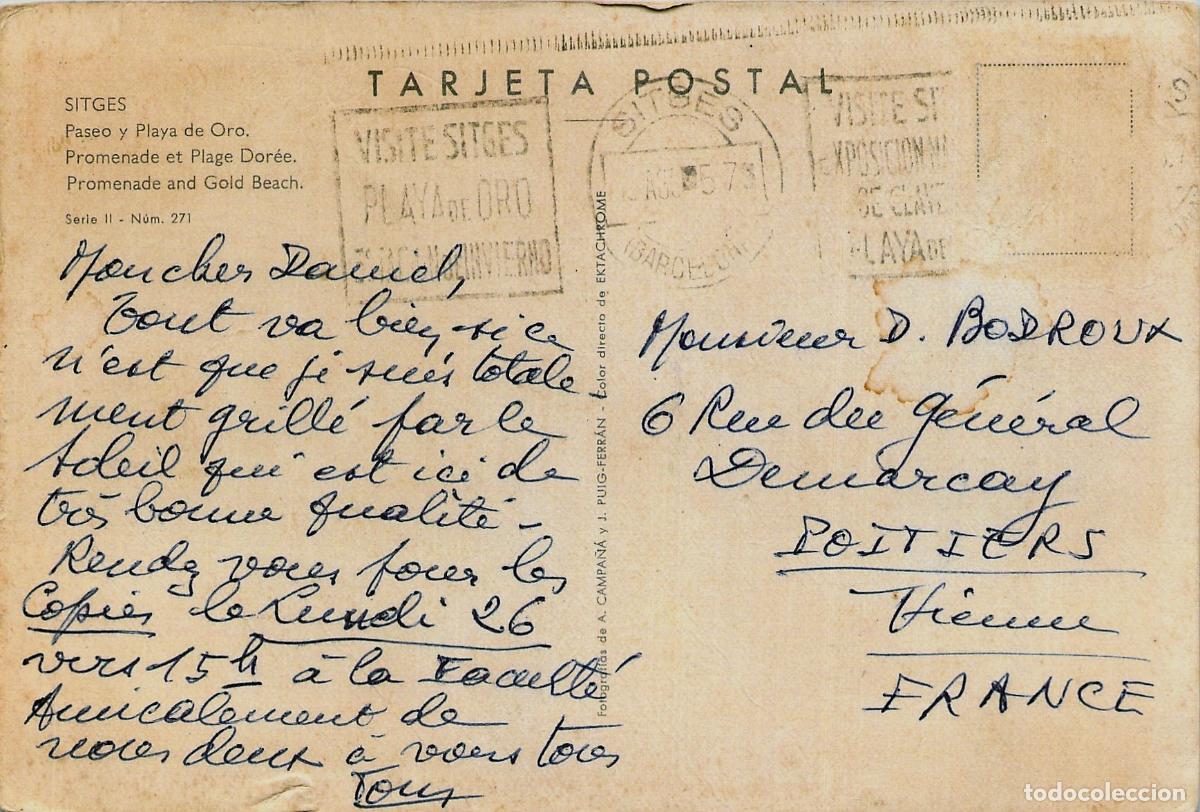 TARJETA POSTAL
SITGES
Paseo y Playa de Oro.
Promenade et Plage Dorée.
Promenade and Gold Beach.
Serie II - Núm. 271
VISITE SITGES
PLAYA DE ORO
INVIERNO
SITGES
AGO 5 73
(BARCELONA)
VISITE SIT
EXPOSICION
DE CLAVE
PLAYA DE
Mon cher Daniel,
Tout va bien, si ce
n'est que je suis totale-
ment grillé par le
soleil qui est ici de
très bonne qualité -
Rendez vous pour les
Copies le Lundi 26
vers 15h à la Faculté
Amicalement de
nous deux à vous tous
Tony
Fotografías de A. CAMPAÑÁ y J. PUIG-FERRÁN - Color directo de EKTACHROME
Monsieur D. BODROUX
6 Rue du Général
Demarcay
POITIERS
Vienne
FRANCE
todocoleccion